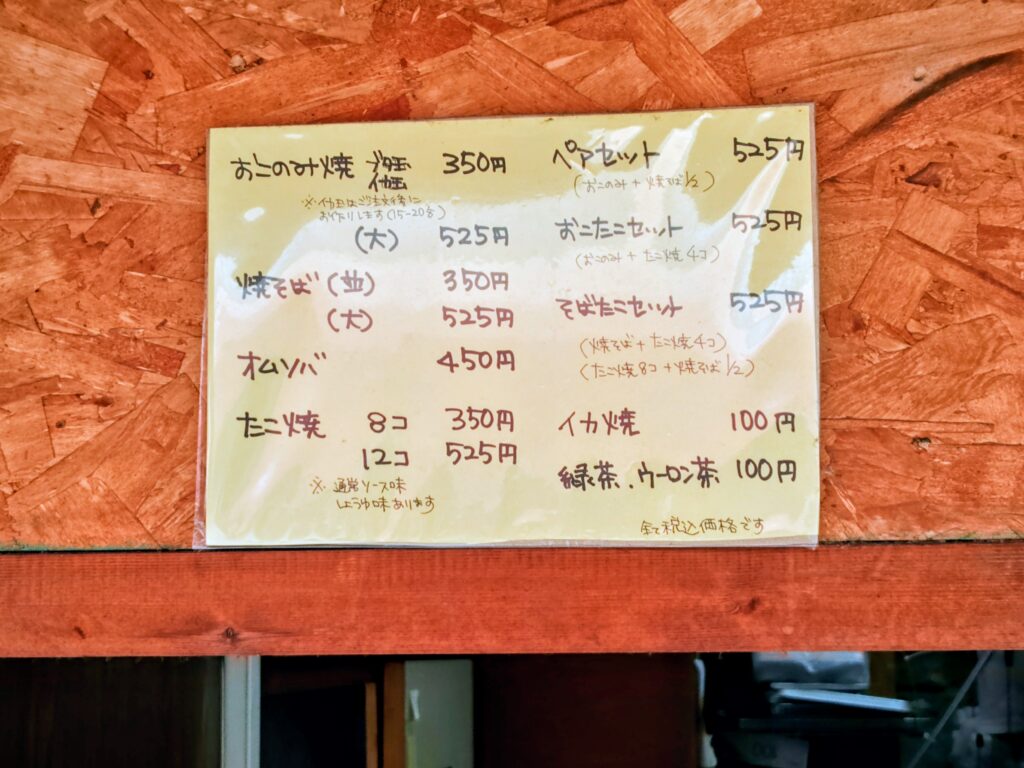 おこのみ焼 ブタ玉 350円
イカ玉
※イカ玉はご注文後に
お作りします(15-20分)
(大) 525円
焼そば(並) 350円
(大) 525円
オムソバ 450円
たこ焼 8コ 350円
12コ 525円
※ 通常ソース味
しょうゆ味あります
ペアセット 525円
(おこのみ + 焼そば1/2)
おこたこセット 525円
(おこのみ + たこ焼4コ)
そばたこセット 525円
(焼そば + たこ焼4コ)
(たこ焼8コ + 焼そば1/2)
イカ焼 100円
緑茶.ウーロン茶 100円
全て税込価格です